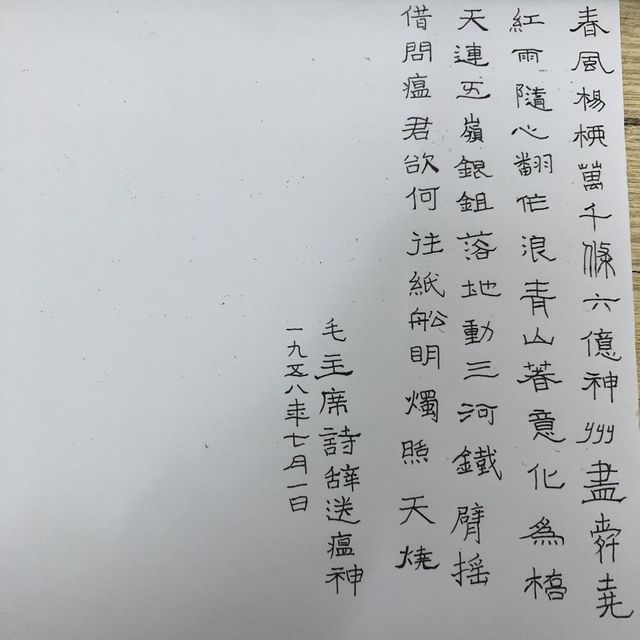 春風楊柳萬千條六億神州盡舜堯
紅雨隨心翻作浪青山著意化為橋
天連五嶺銀鉏落地動三河鐵臂搖
借問瘟君欲何往紙船明燭照天燒
毛主席詩辭送瘟神
一九五八年七月一日